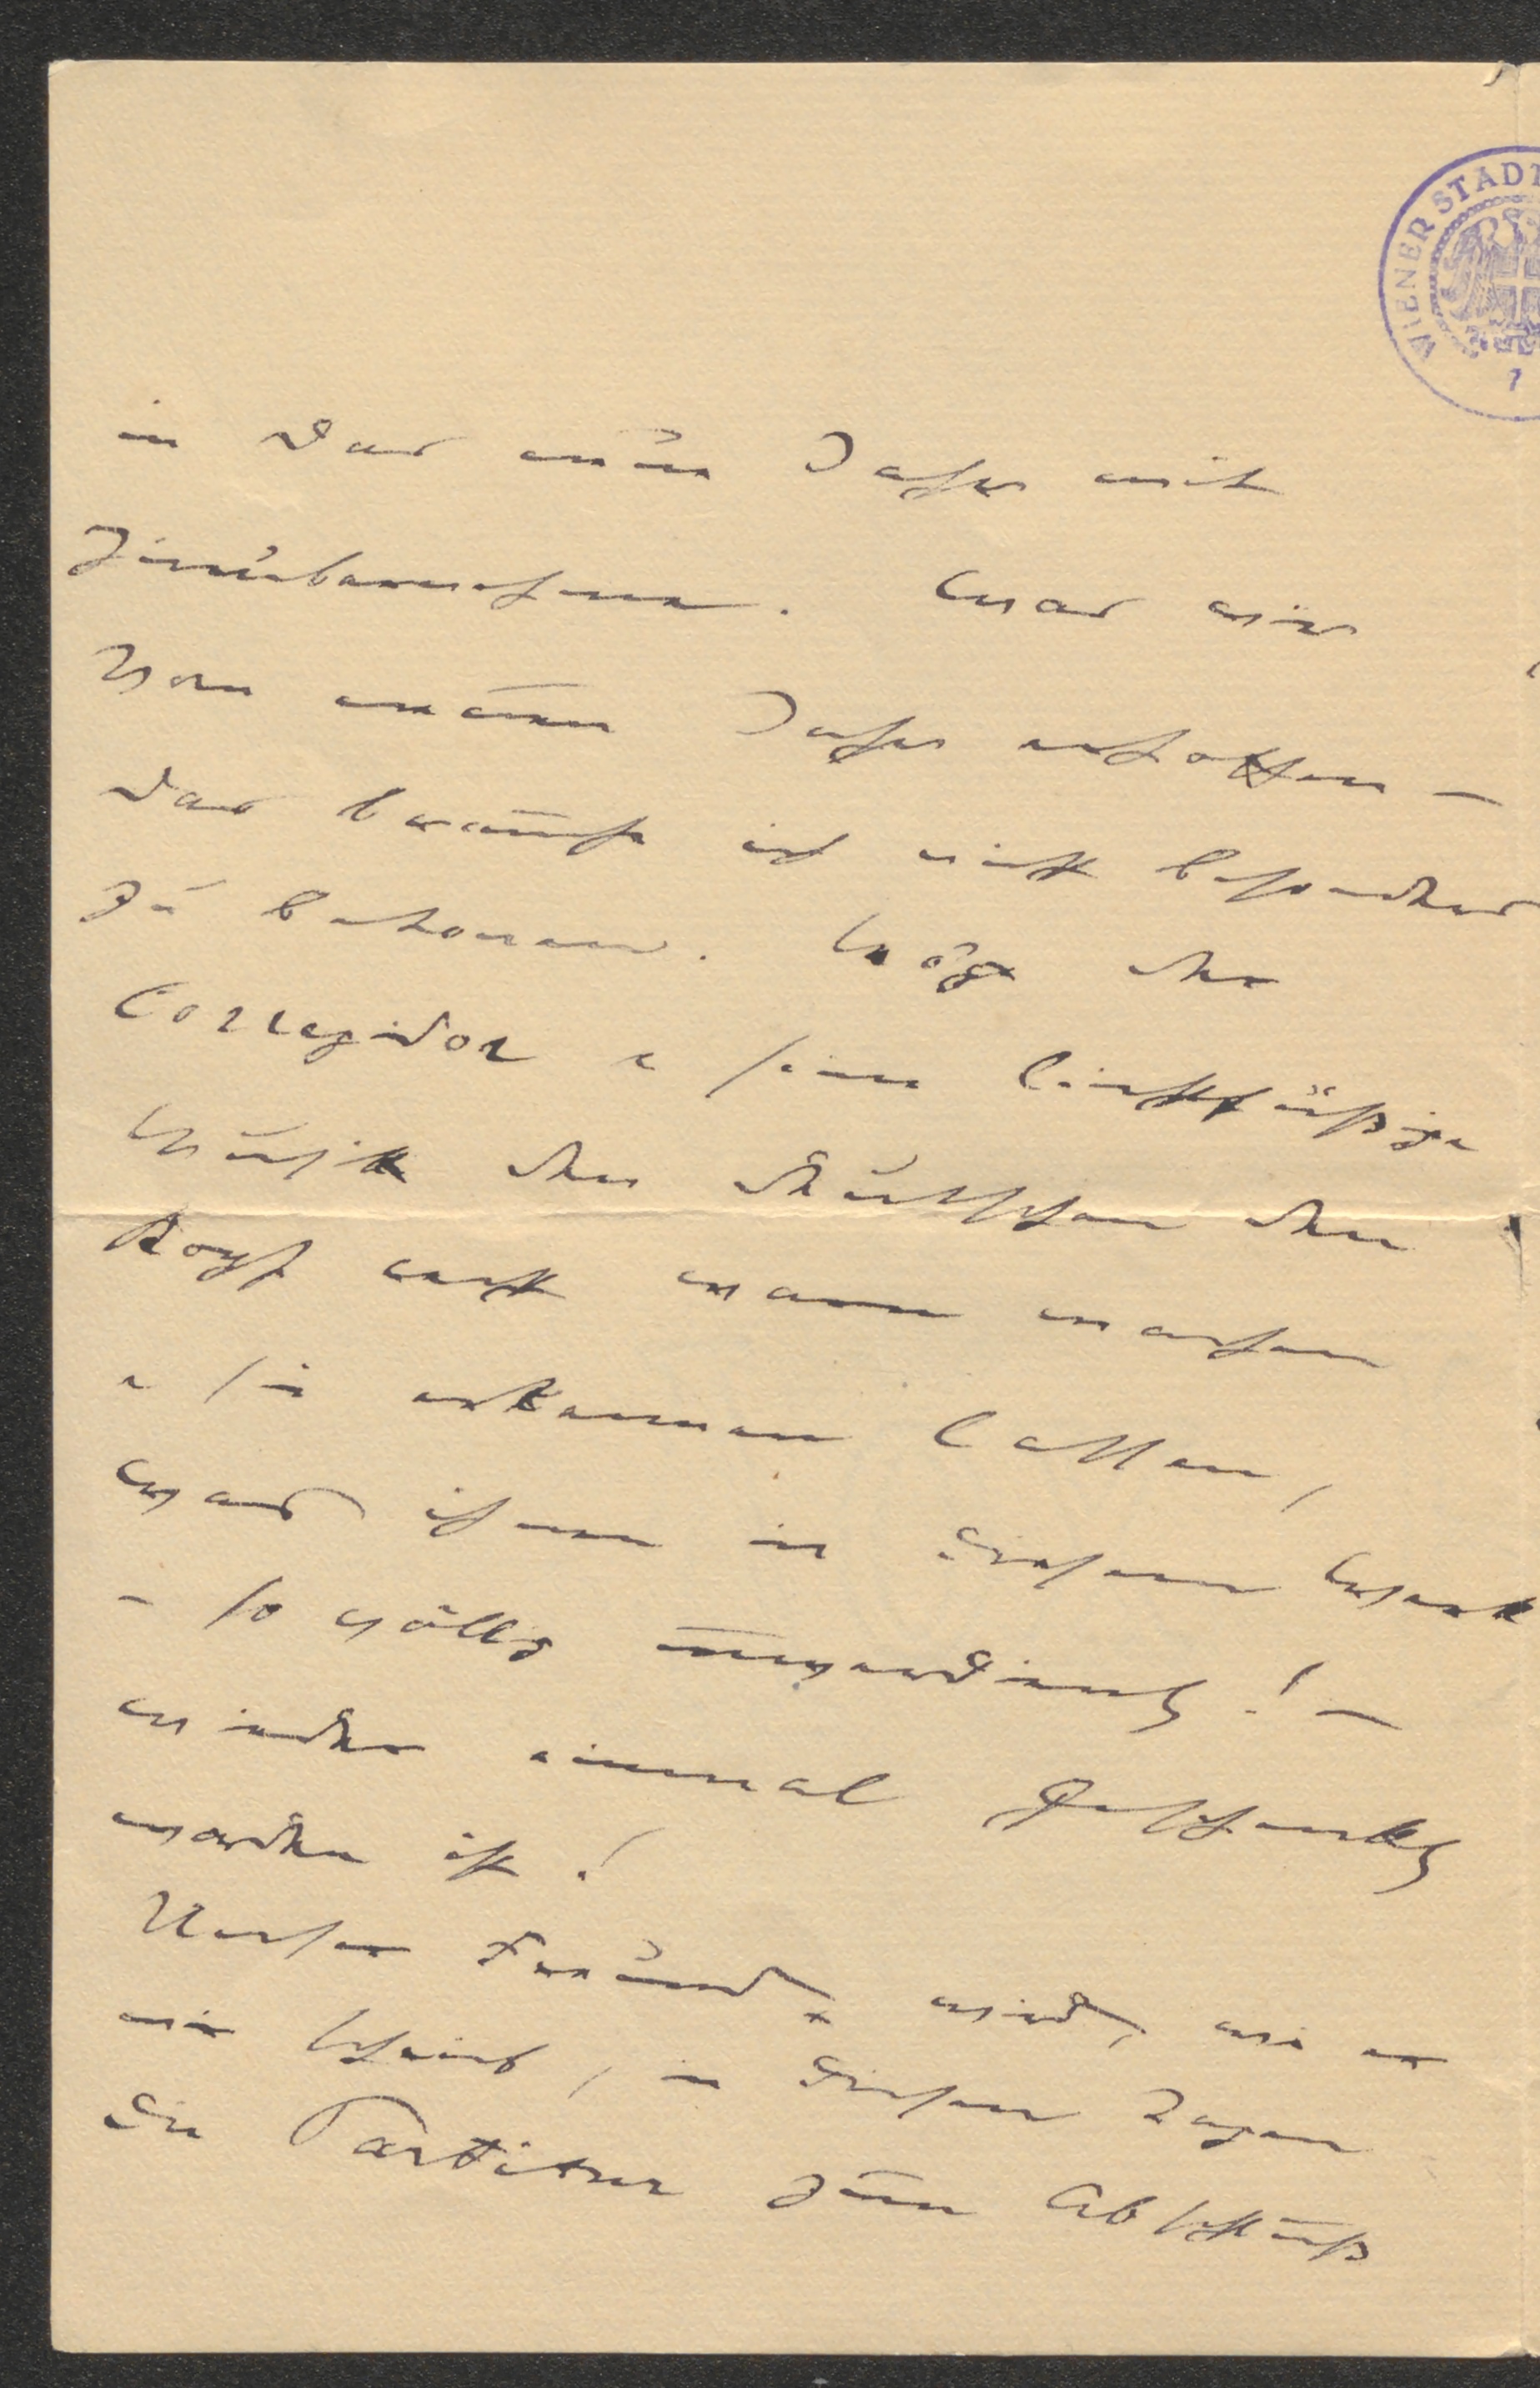 WIENER STADT
in das neue Jahr mit
hinübernehmen. Was wir
vom neuen Jahr erhoffen –
das brauche ich nicht besonders
zu betonen. Mög der
Corregidor u seine leichtfüßige
Musik den deutschen den
Kopf recht warm machen
u sie erkennen lassen,
was ihnen in diesem Werk
– so völlig unverdient! –
wieder einmal geschenkt
worden ist!
Unser Freund wird, wie er
mir schreibt, in diesen Tagen
die Partitur zum Abschluß